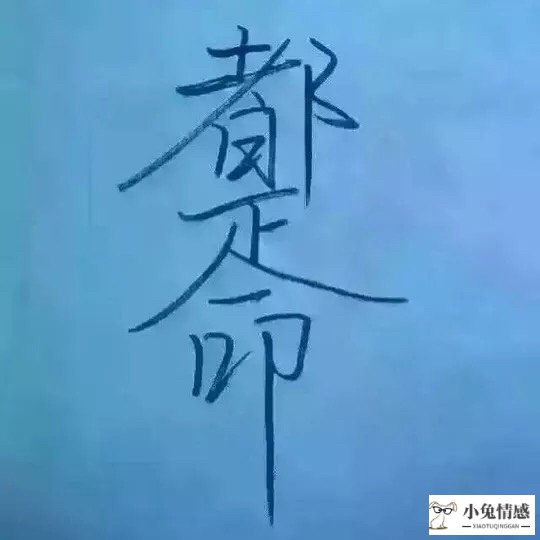 都是命
小兔情感
XIAOTUQINGGAN